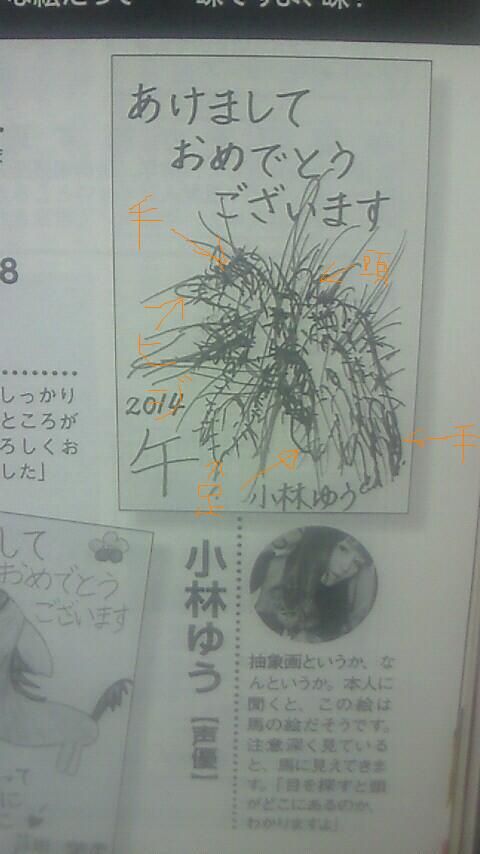 あけまして
おめでとう
ございます
手
頭
ヒジ
2014
午
手
足
小林ゆう
8
しっかり
ところが
ろしくお
した」
小林ゆう【声優】
抽象画というか、な
んというか。本人に
聞くと、この絵は
馬の絵だそうです。
注意深く見ている
と、馬に見えてきま
す。「目を探すと頭
がどこにあるのか、
わかりますよ」
して
おめでとう
ございます